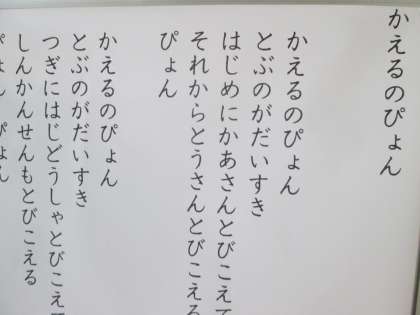 かえるのぴょん
かえるのぴょん
とぶのがだいすき
はじめにかあさんとびこえて
それからとうさんとびこえる
ぴょん
かえるのぴょん
とぶのがだいすき
つぎにはじどうしゃとびこえて
しんかんせんもとびこえる
ぴょん　ぴょん